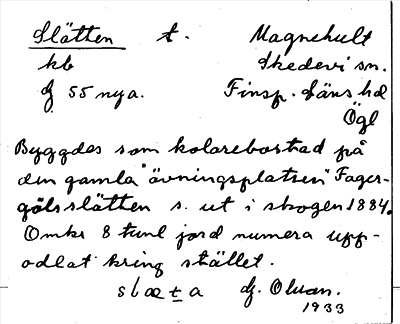 Slätten t. Magnehult
kb Skedevi sn.
Dj 55 nya. Finsp. läns hd
Ögl
Byggdes som kolarebostad på
den gamla "övningsplatsen" Fager-
gölsslätten s. ut i skogen 1884.
Omkr 8 tunl jord numera upp-
odlat kring stället.
Dj. Olsson.
1933